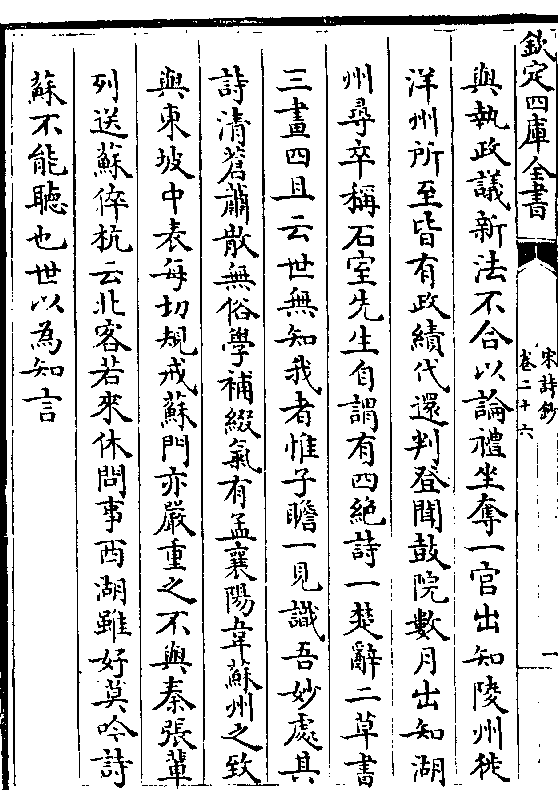 欽定四庫全書
宋詩鈔
卷二十六
一
與執政議新法不合以論禮坐奪一官出知陵州徙
洋州所至皆有政績代還判登聞鼓院數月出知湖
州尋卒稱石室先生自謂有四絶詩一楚辭二草書
三畫四且云世無知我者惟子瞻一見識吾妙處其
詩清蒼蕭散無俗學補綴氣有孟襄陽韋蘇州之致
與東坡中表每切規戒蘇門亦嚴重之不與秦張輩
列送蘇倅杭云北客若來休問事西湖雖好莫吟詩
蘇不能聽也世以為知言